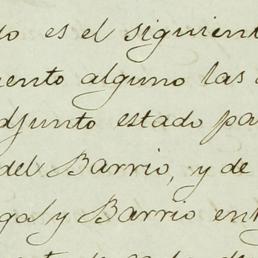 do es el siguien
ento alguno las
djunto estado pa
del Barrio, y de
ga y Barrio en